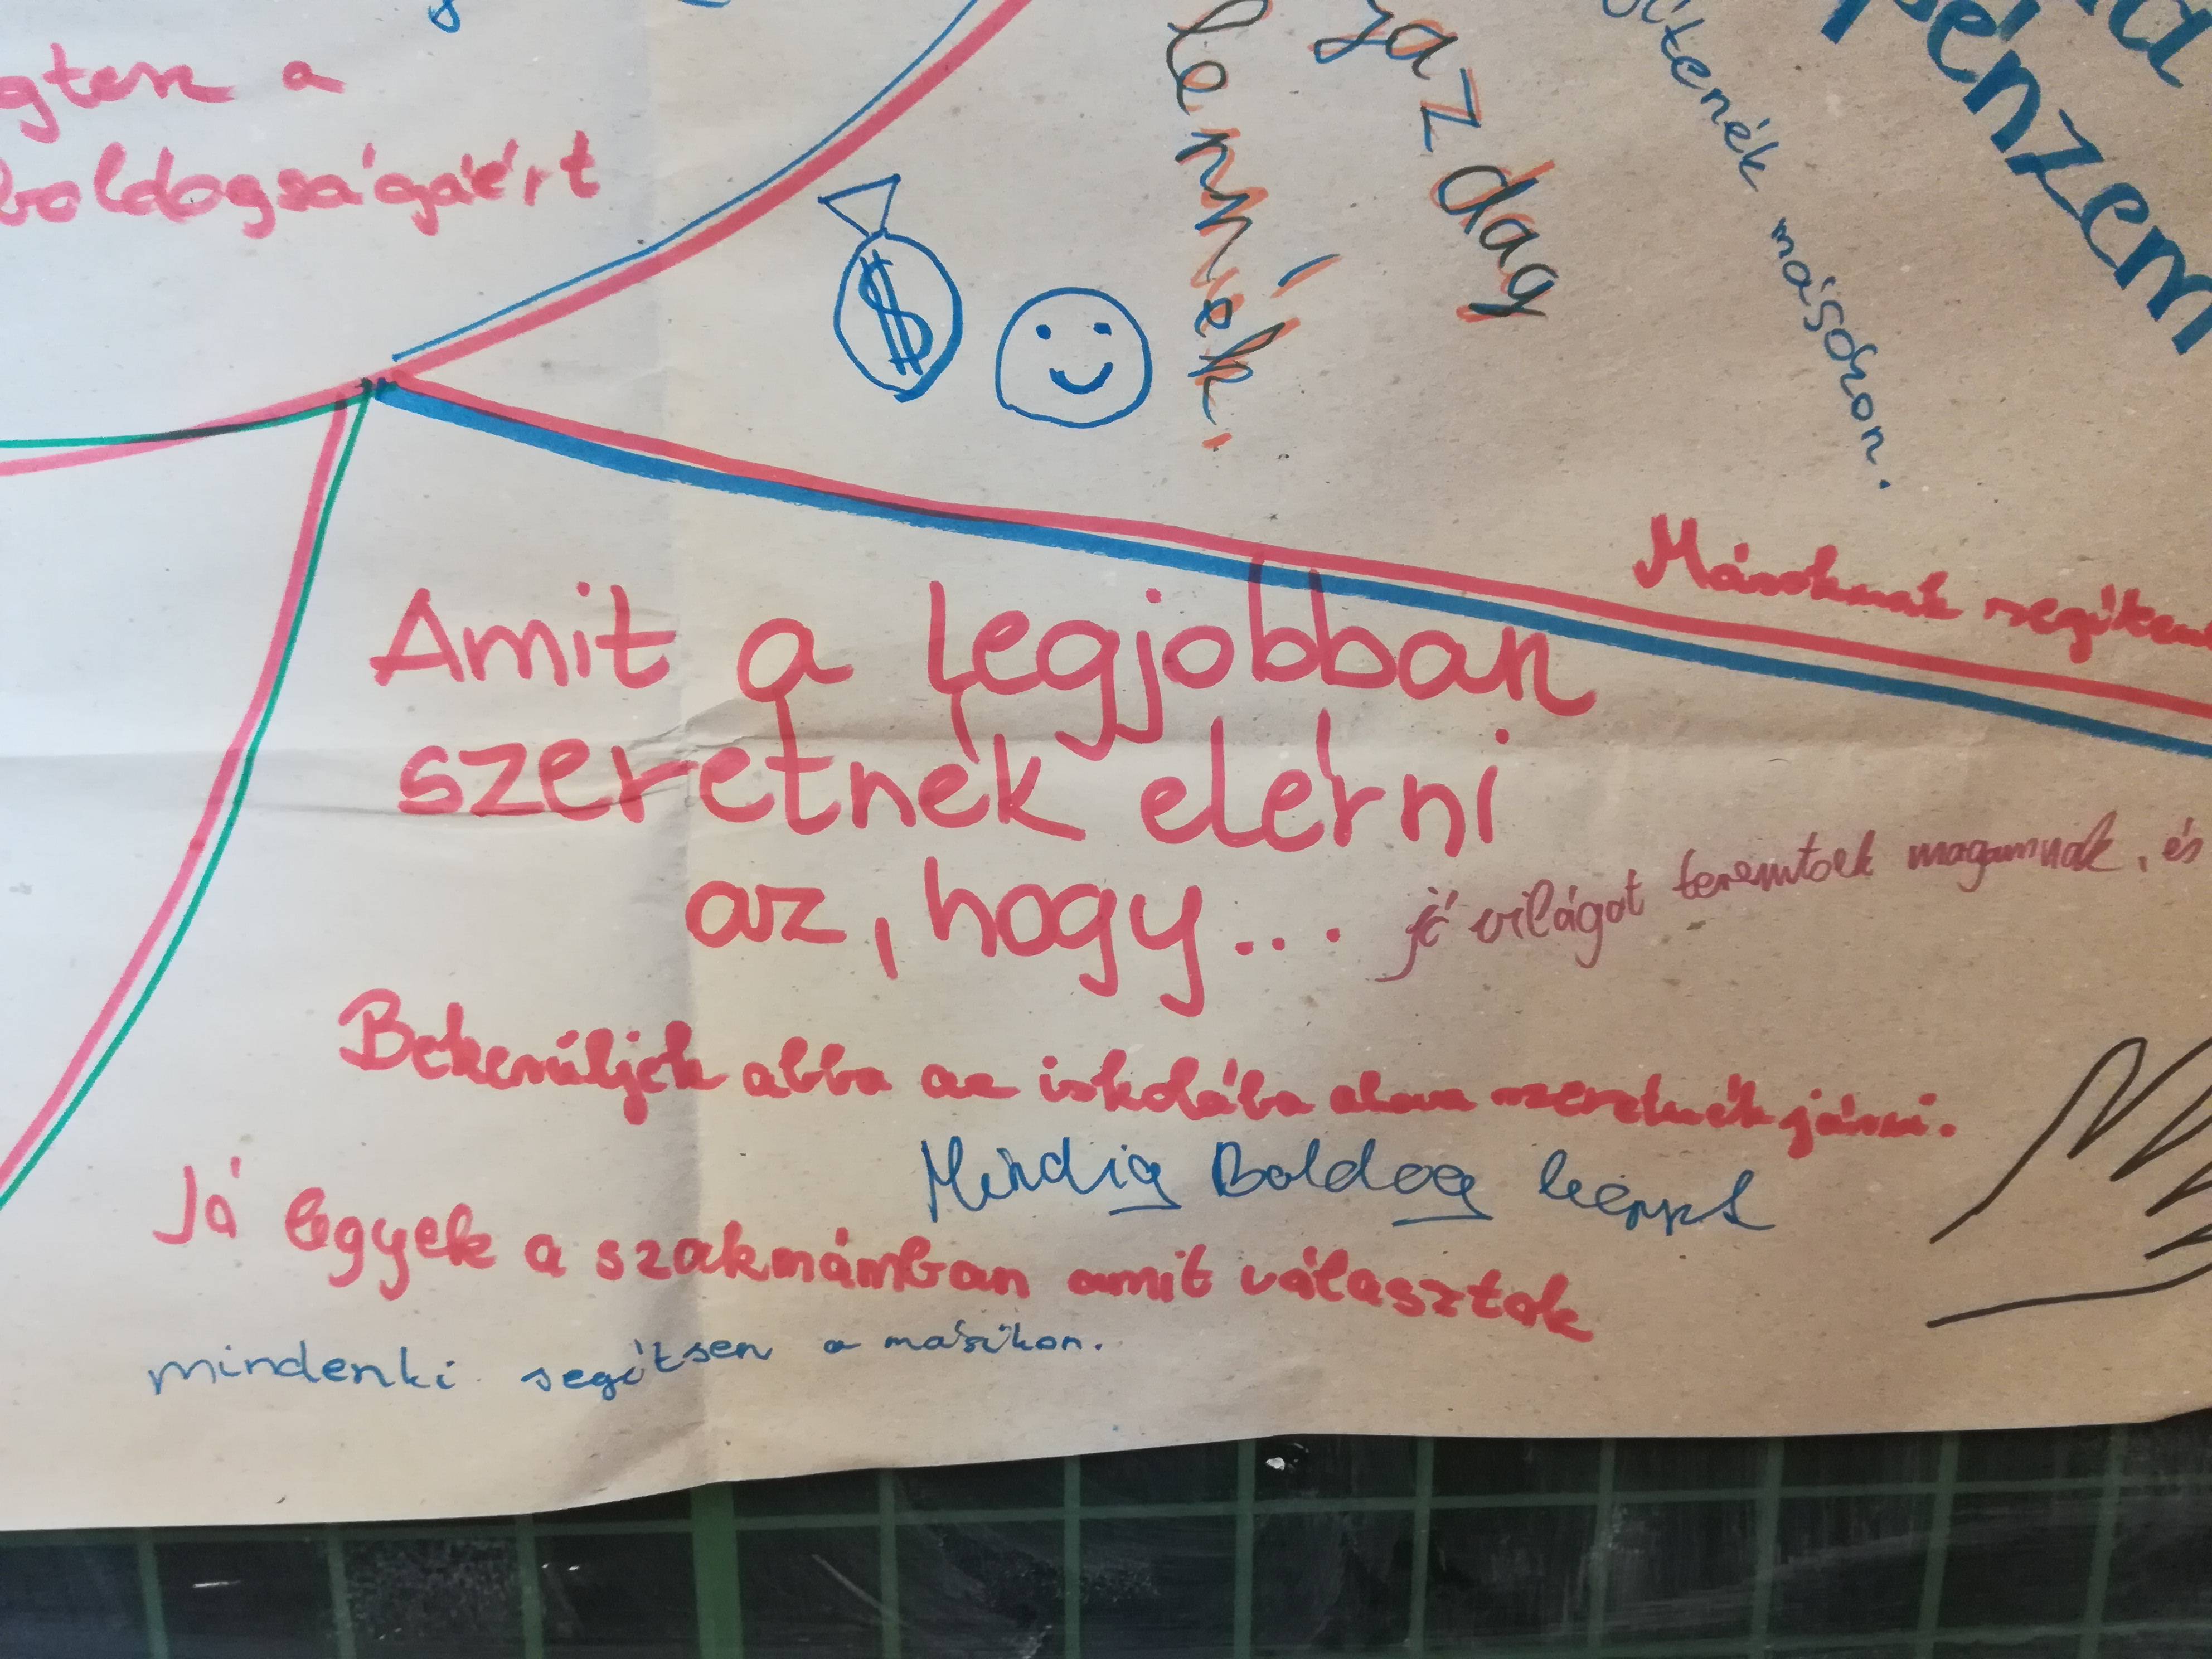 a
boldogságáért
gazdag
lennék.
másokon.
pénzem
Másoknak
Amit a legjobban
szeretnék elérni
az, hogy...
jó világot teremtsek magunnak, és
Bekerüljek abba az iskolába ahova szeretnék járni.
Mindig Boldog
Jó legyek a szakmámban amit választok
mindenki segítsen a másikon.